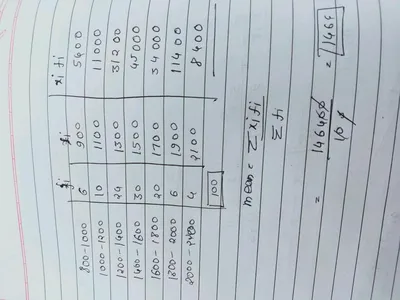 fi xi xi fi
800-1000 6 900 5400
1000-1200 10 1100 11000
1200-1400 24 1300 31200
1400-1600 30 1500 45000
1600-1800 20 1700 34000
1800-2000 6 1900 11400
2000-2200 4 2100 8400
100
mean = Σxifi
Σfi
= 146400
100
= 1464